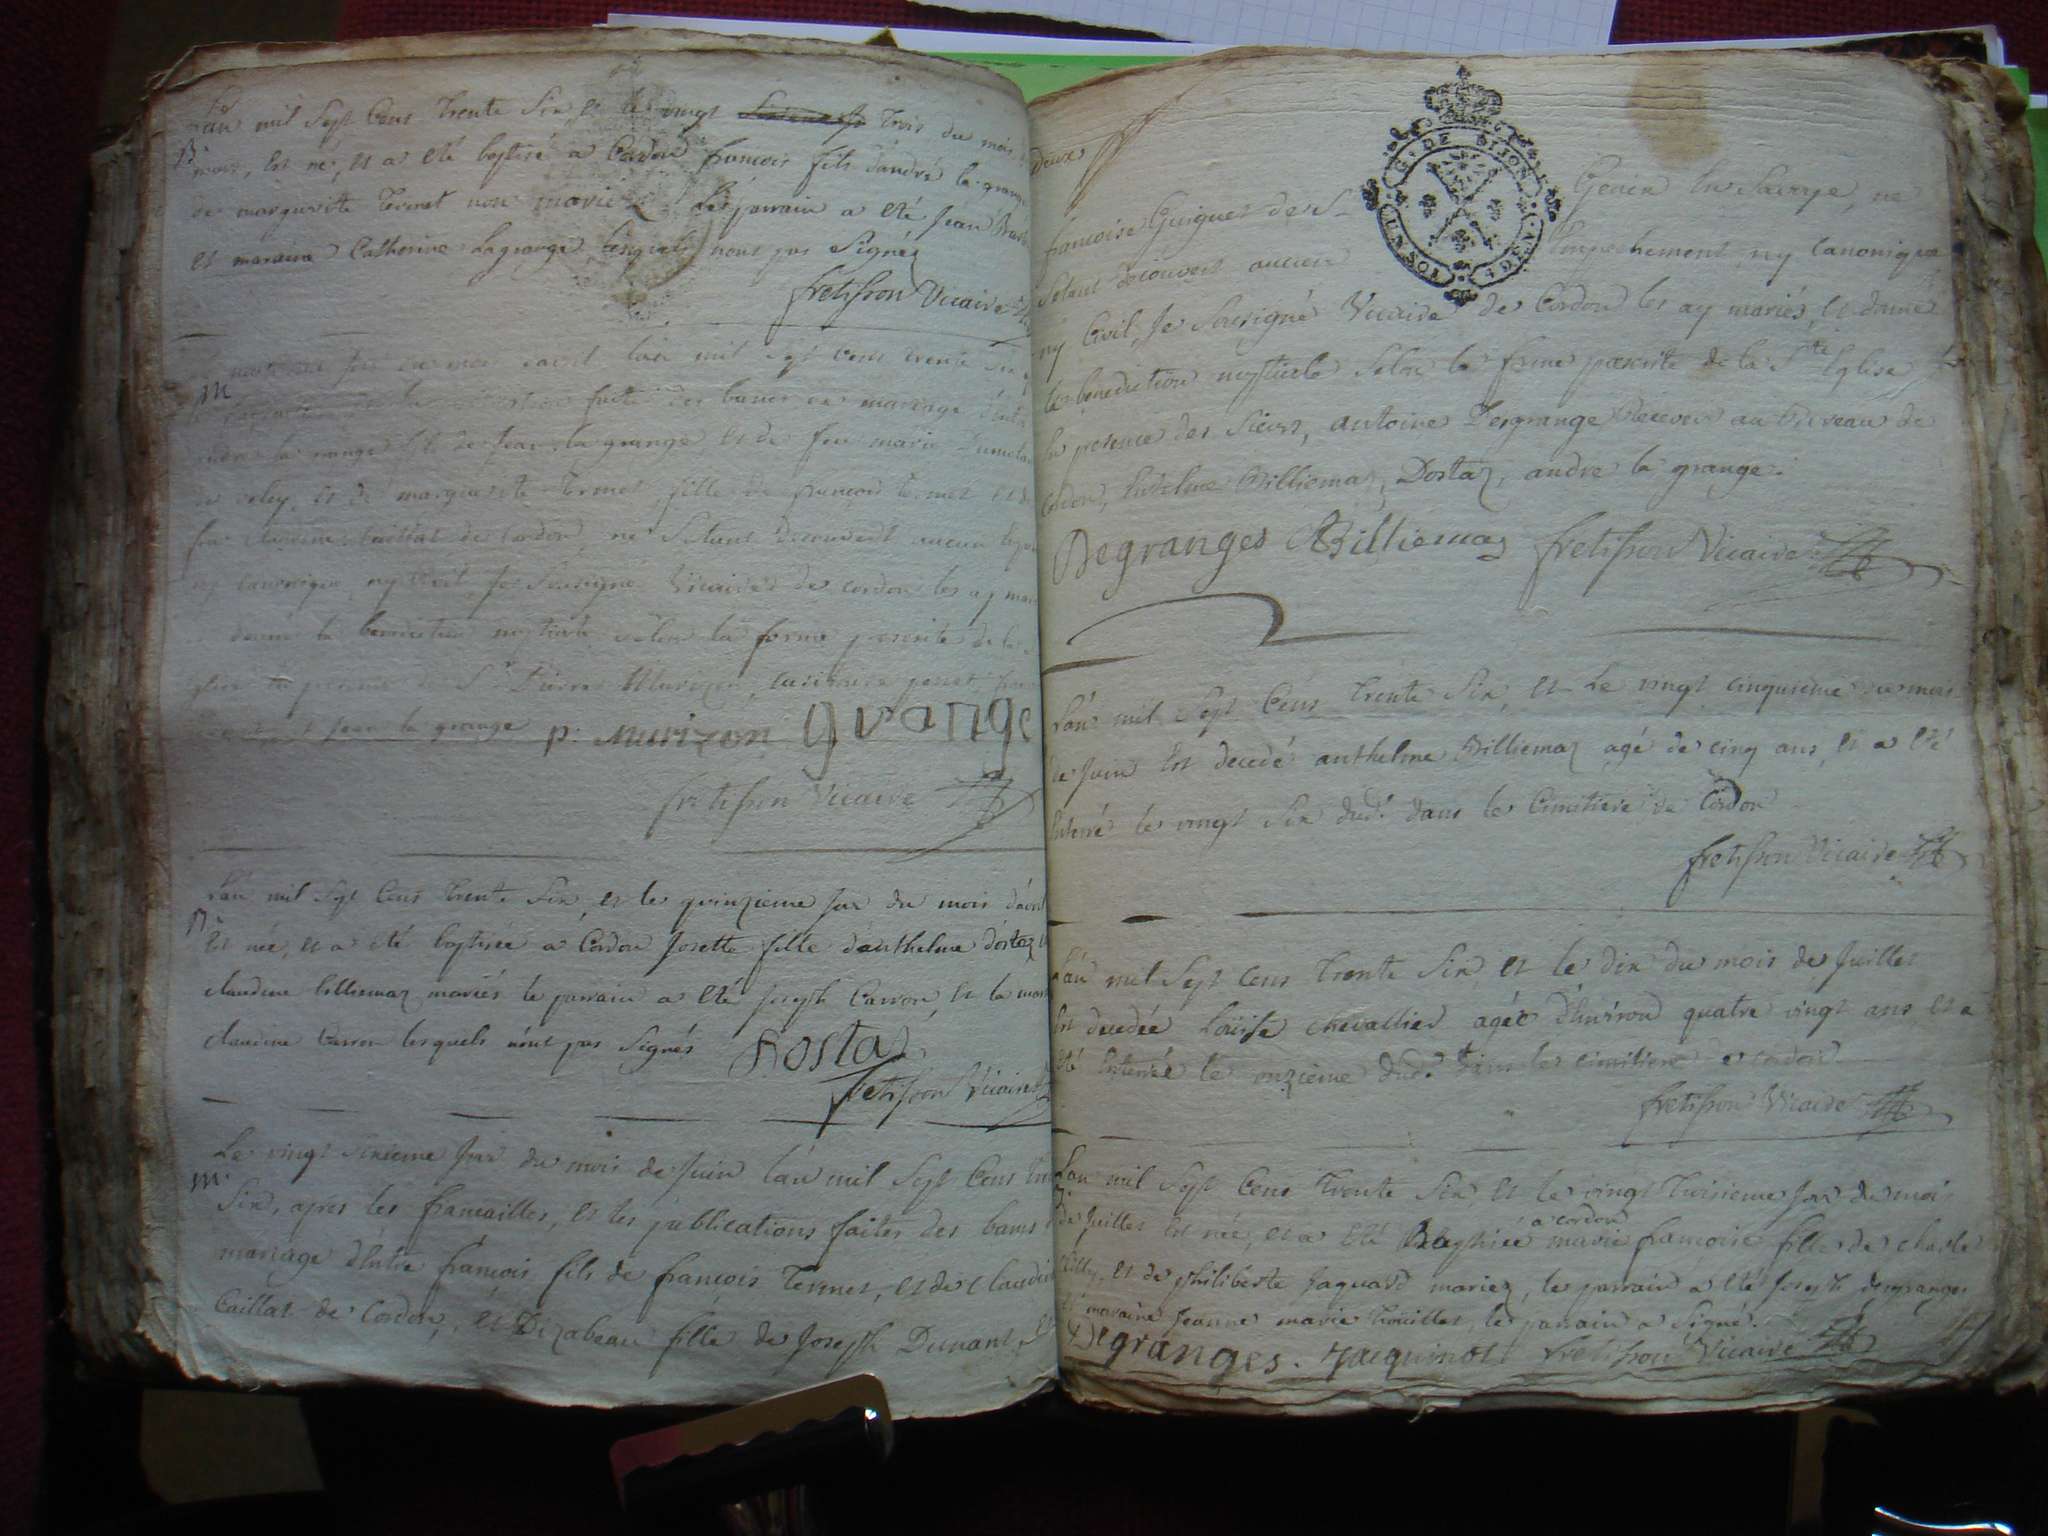 L'an mil Sept Cens trente Six, et le vingt trois du mois
mars, est né, et a eté baptisé a Cordon françois fils d'andré la grange
de marguerite Termet non mariez Le parrain a eté Jean
et maraine Catherine Lagrange, lesquels n'ont pas Signéz
fretisson Vicaire
m
jour du mois d'avril l'an mil Sept cens trente Six
faites des bancs de mariage d'entre
andré la grange fils de Jean la grange et de feu marie
et de marguerite Termet, fille de françois Termet et de
feu claudine Caillat de Cordon, ne S'etant decouvert aucun
ny canonique, ny Civil, Je Sousigné Vicaire de cordon les ay
donné la benediction nuptiale selon la forme prescrite de la
Sr Pierre Murizon,
Jean la grange p. murizon grange
fretisson Vicaire
L'an mil Sept Cens trente Six, et le quinzieme jour du mois d'avril
B. est née, et a eté baptisée a Cordon Josette fille d'anthelme dostaz
claudine billiemaz mariés le parrain a eté Joseph Carron, et la
claudine Carron lesquels n'ont pas Signés Dostaz
fretisson Vicaire
Le vingt Sixieme jour du mois de Juin l'an mil Sept Cens
m. Six, apres les fiancailles, et les publications faites des bancs
mariage d'entre françois fils de françois Termet, et de Claudine
Caillat de Cordon, et D'izabeau fille de Joseph Dunant, et
deux
G. DE DIJON
françoise Guiguet de St Genix En Savoye, ne
S'etant decouvert aucun Empechement, ny canonique
ny Civil, Je Sousigné Vicaire de Cordon les ay mariés, et donné
la benediction nuptiale Selon la forme prescrite de la Ste Eglise
En presence des Sieurs, antoine Desgrange Receveur au Bureau de
Cordon, Anthelme Billiemaz, Dostaz, andre la grange.
Degranges Billiemaz fretisson Vicaire
L'an mil Sept Cens trente Six, et Le vingt cinquieme du mois
de Juin est decedé anthelme Billiemaz agé de cinq ans, et a eté
Enterré le vingt Six dud. dans le Cimitiere de Cordon
fretisson Vicaire
L'an mil Sept cens trente Six et le dix du mois de Juillet
est decedée Louise chevallier agée d'environ quatre vingt ans et a
eté Enterrée le onzieme dud. dans le cimitiere de cordon
fretisson Vicaire
L'an mil Sept Cens trente Six, et le vingt troisieme jour du mois
de Juillet est née, et a eté Baptisée a cordon marie françoise fille de charle
et de philiberte Jaquard mariez, le parrain a eté Joseph degranges
maraine Jeanne marie trouillet, le parrain a Signé.
Degranges. Jacquinot fretisson Vicaire